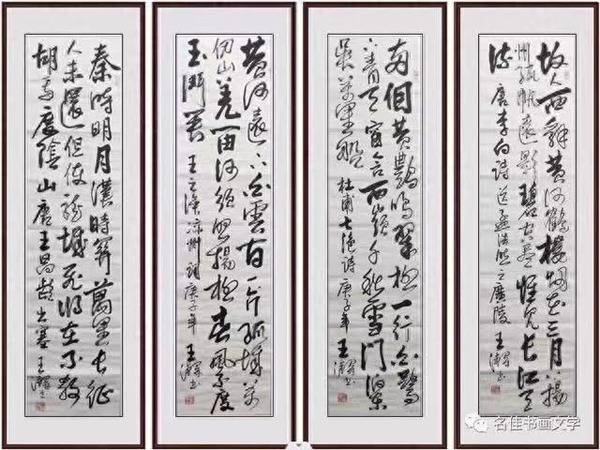 故人西辞黄鹤楼烟花三月下揚
州孤帆遠影碧空盡惟见长江天
際流 唐李白诗送孟浩然之廣陵 王
两個黄鹂鳴翠柳一行白鹭
上青天窗含西嶺千秋雪门泊
東吴萬里船 杜甫七绝诗 庚子年 王
黄河遠上白雲间一片孤城萬
仞山羌笛何須怨楊柳春風不度
玉门關 王之渙凉州词 庚子年 王
秦時明月漢時關萬里长征
人未還但使龙城飞将在不教
胡马度陰山 唐王昌齡出塞 王
名佳书画文学